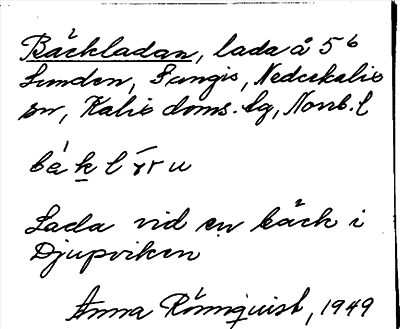 Bäckladan, lada å 56
Lunden, Sangis, Nederkalix
sn, Kalix doms. lg, Norrb. l
Lada vid en bäck i
Djupviken
Anna Rönnquist, 1949